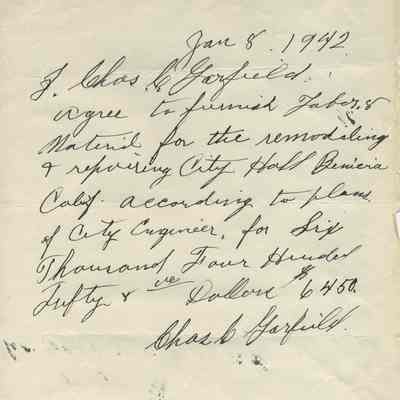 Jan 8. 1942
I, Chas C Garfield.
agree to furnish Labor &
Material for the remodiling
& repairing City Hall Benicia
Calif. according to plans
of City Engineer, for Six
Thousand Four Hunded
Fifty & Dollars $6450.
Chas C Garfield.